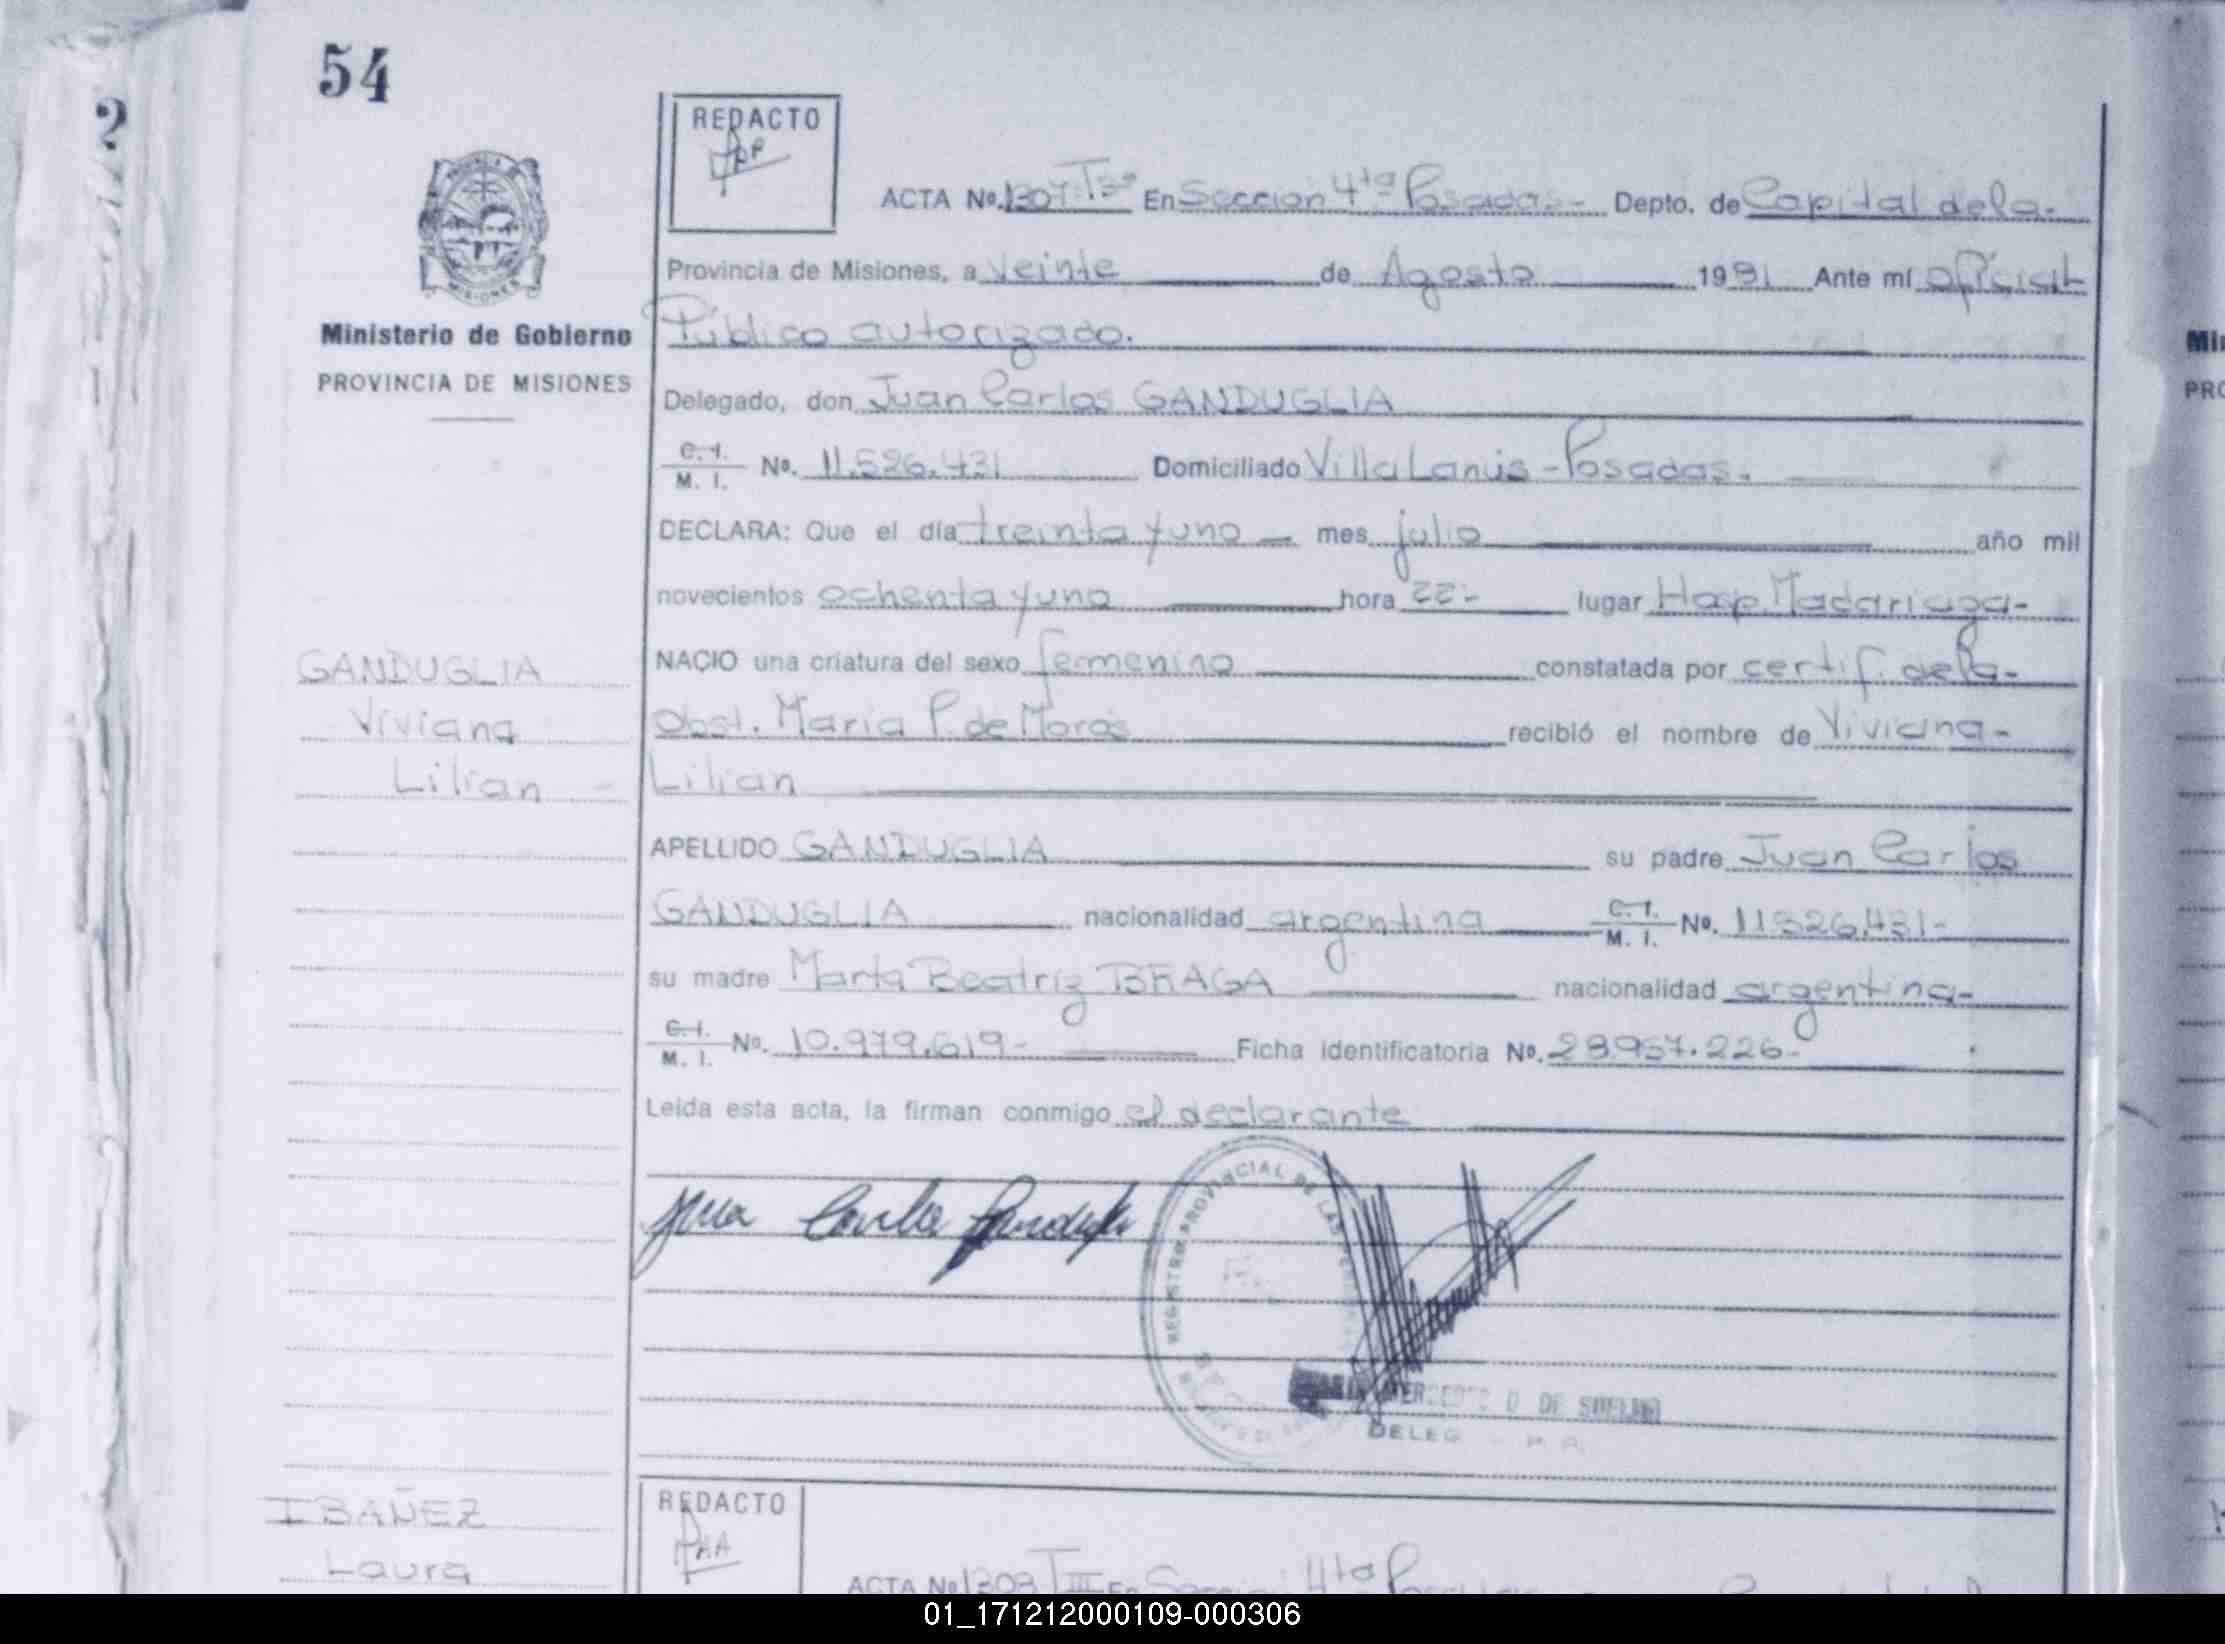 54
2
REDACTO
ACTA Nº. 1307-Tº3º En Sección 4ta Posadas- Depto. de Capital de la-
Provincia de Misiones, a veinte de Agosto 1981 Ante mí oficial
Público autorizado.
Ministerio de Gobierno
PROVINCIA DE MISIONES
Delegado, don Juan Carlos GANDUGLIA
C. I.
M. I. Nº. 11.526.431 Domiciliado Villa Lanús - Posadas.
DECLARA: Que el día treinta y uno mes julio año mil
novecientos ochenta y uno hora 22- lugar Hosp. Madariaga-
NACIO una criatura del sexo femenino constatada por certif. de la-
Obst. Maria P. de Morás recibió el nombre de Viviana-
Lilian
GANDUGLIA
Viviana
Lilian
APELLIDO GANDUGLIA su padre Juan Carlos
GANDUGLIA nacionalidad argentina C. I. M. I. Nº. 11.526.431-
su madre Marta Beatriz BRAGA nacionalidad argentina-
C. I.
M. I. Nº. 10.979.619- Ficha identificatoria Nº. 28.957.226-
Leída esta acta, la firman conmigo el declarante
Juan Carlos Ganduglia
REGISTRO PROVINCIAL DE LAS
DE
DELEG
IBAÑEZ
Laura
REDACTO
ACTA Nº 1308 TIII En Sección 4ta Posadas
Min
PRO
01_171212000109-000306